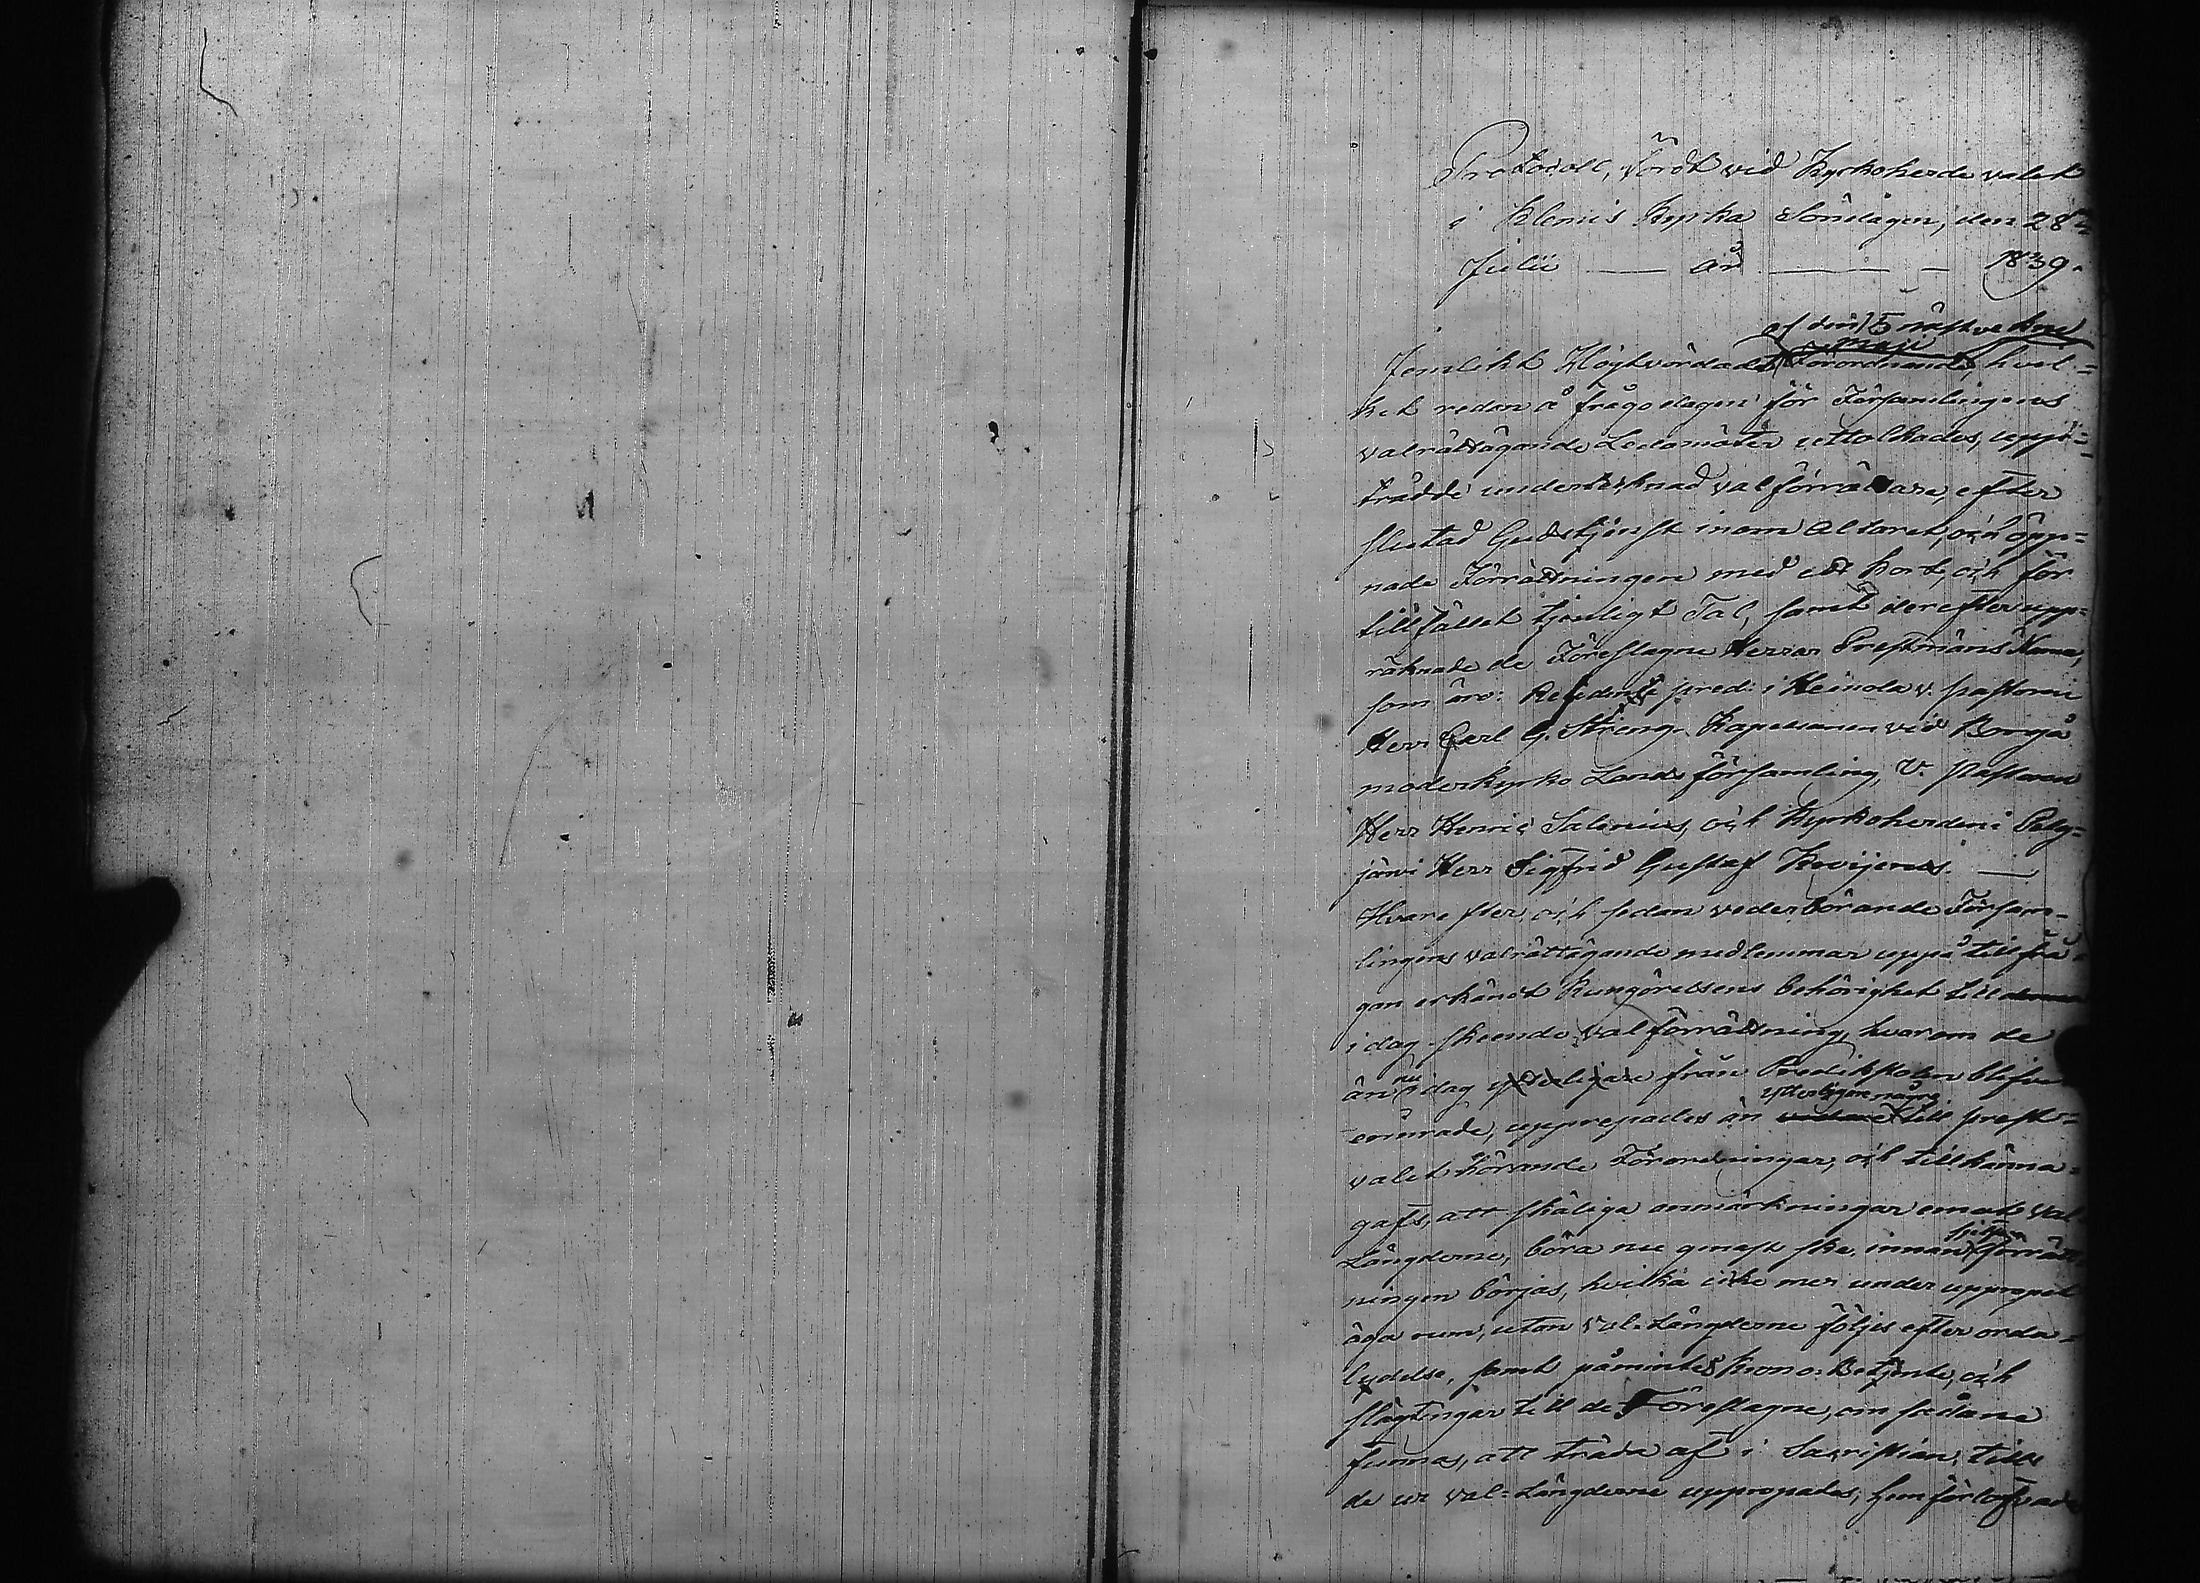 Protocoll, fördt vid Kyrkoherde valet
i Klemis Kyrka Söndagen, den 28de
Julii — år — — 1839.
af den 15 nästvekne
Maji
Jemlikt Högtvördade Förordnande, hvil=
ket redan å frågodagen för Församlingens
valrättägande Ledamöter uttolkades, upp=
trädde undertecknad valförrättare, efter
slutad Gudstjenst inom Altaret, och öpp=
nade Förrättningen med ett kort, och för
tillfället tjenligt Tal, samt derefter upp=
räknade de Föreslagne Herrar Prestmäns Namn,
som äro: pred: i Heinola v. pastoren
Herr Carl G. Streng. Kapellanen vid Borgå
moderkyrko Lands församling, V. pastoren
Herr Henric Salenius, och Kyrkoherden i Pelg=
järvi Herr Sigfrid Gustaf —
Hvarefter, och sedan vederbörande Försam=
lingens valrättägande medlemmar uppå tillfrå=
gan erkändt Kungörelsens behörighet till
i dag skeende valförrättning, hvarom de
än nu idag ytterligare från Predikstolen blifvit
ytterligare några
omrade, upprepades än till prest=
valet hörande Förordningar, och tillkänna=
gafs, att skäliga anmärkningar emot val
Längderne, böra nu genast ske, innan förrätt
ningen börjas, hvilka icke mer under uppropet
äga rum, utan val-Längderne följes efter orda=
lydelse, samt påmintes krono-Betjente, och
slägtingar till de Föreslagne, om sådane
funnas, att träda af i Sacristian, tills
de ur val=Längderne uppropades,